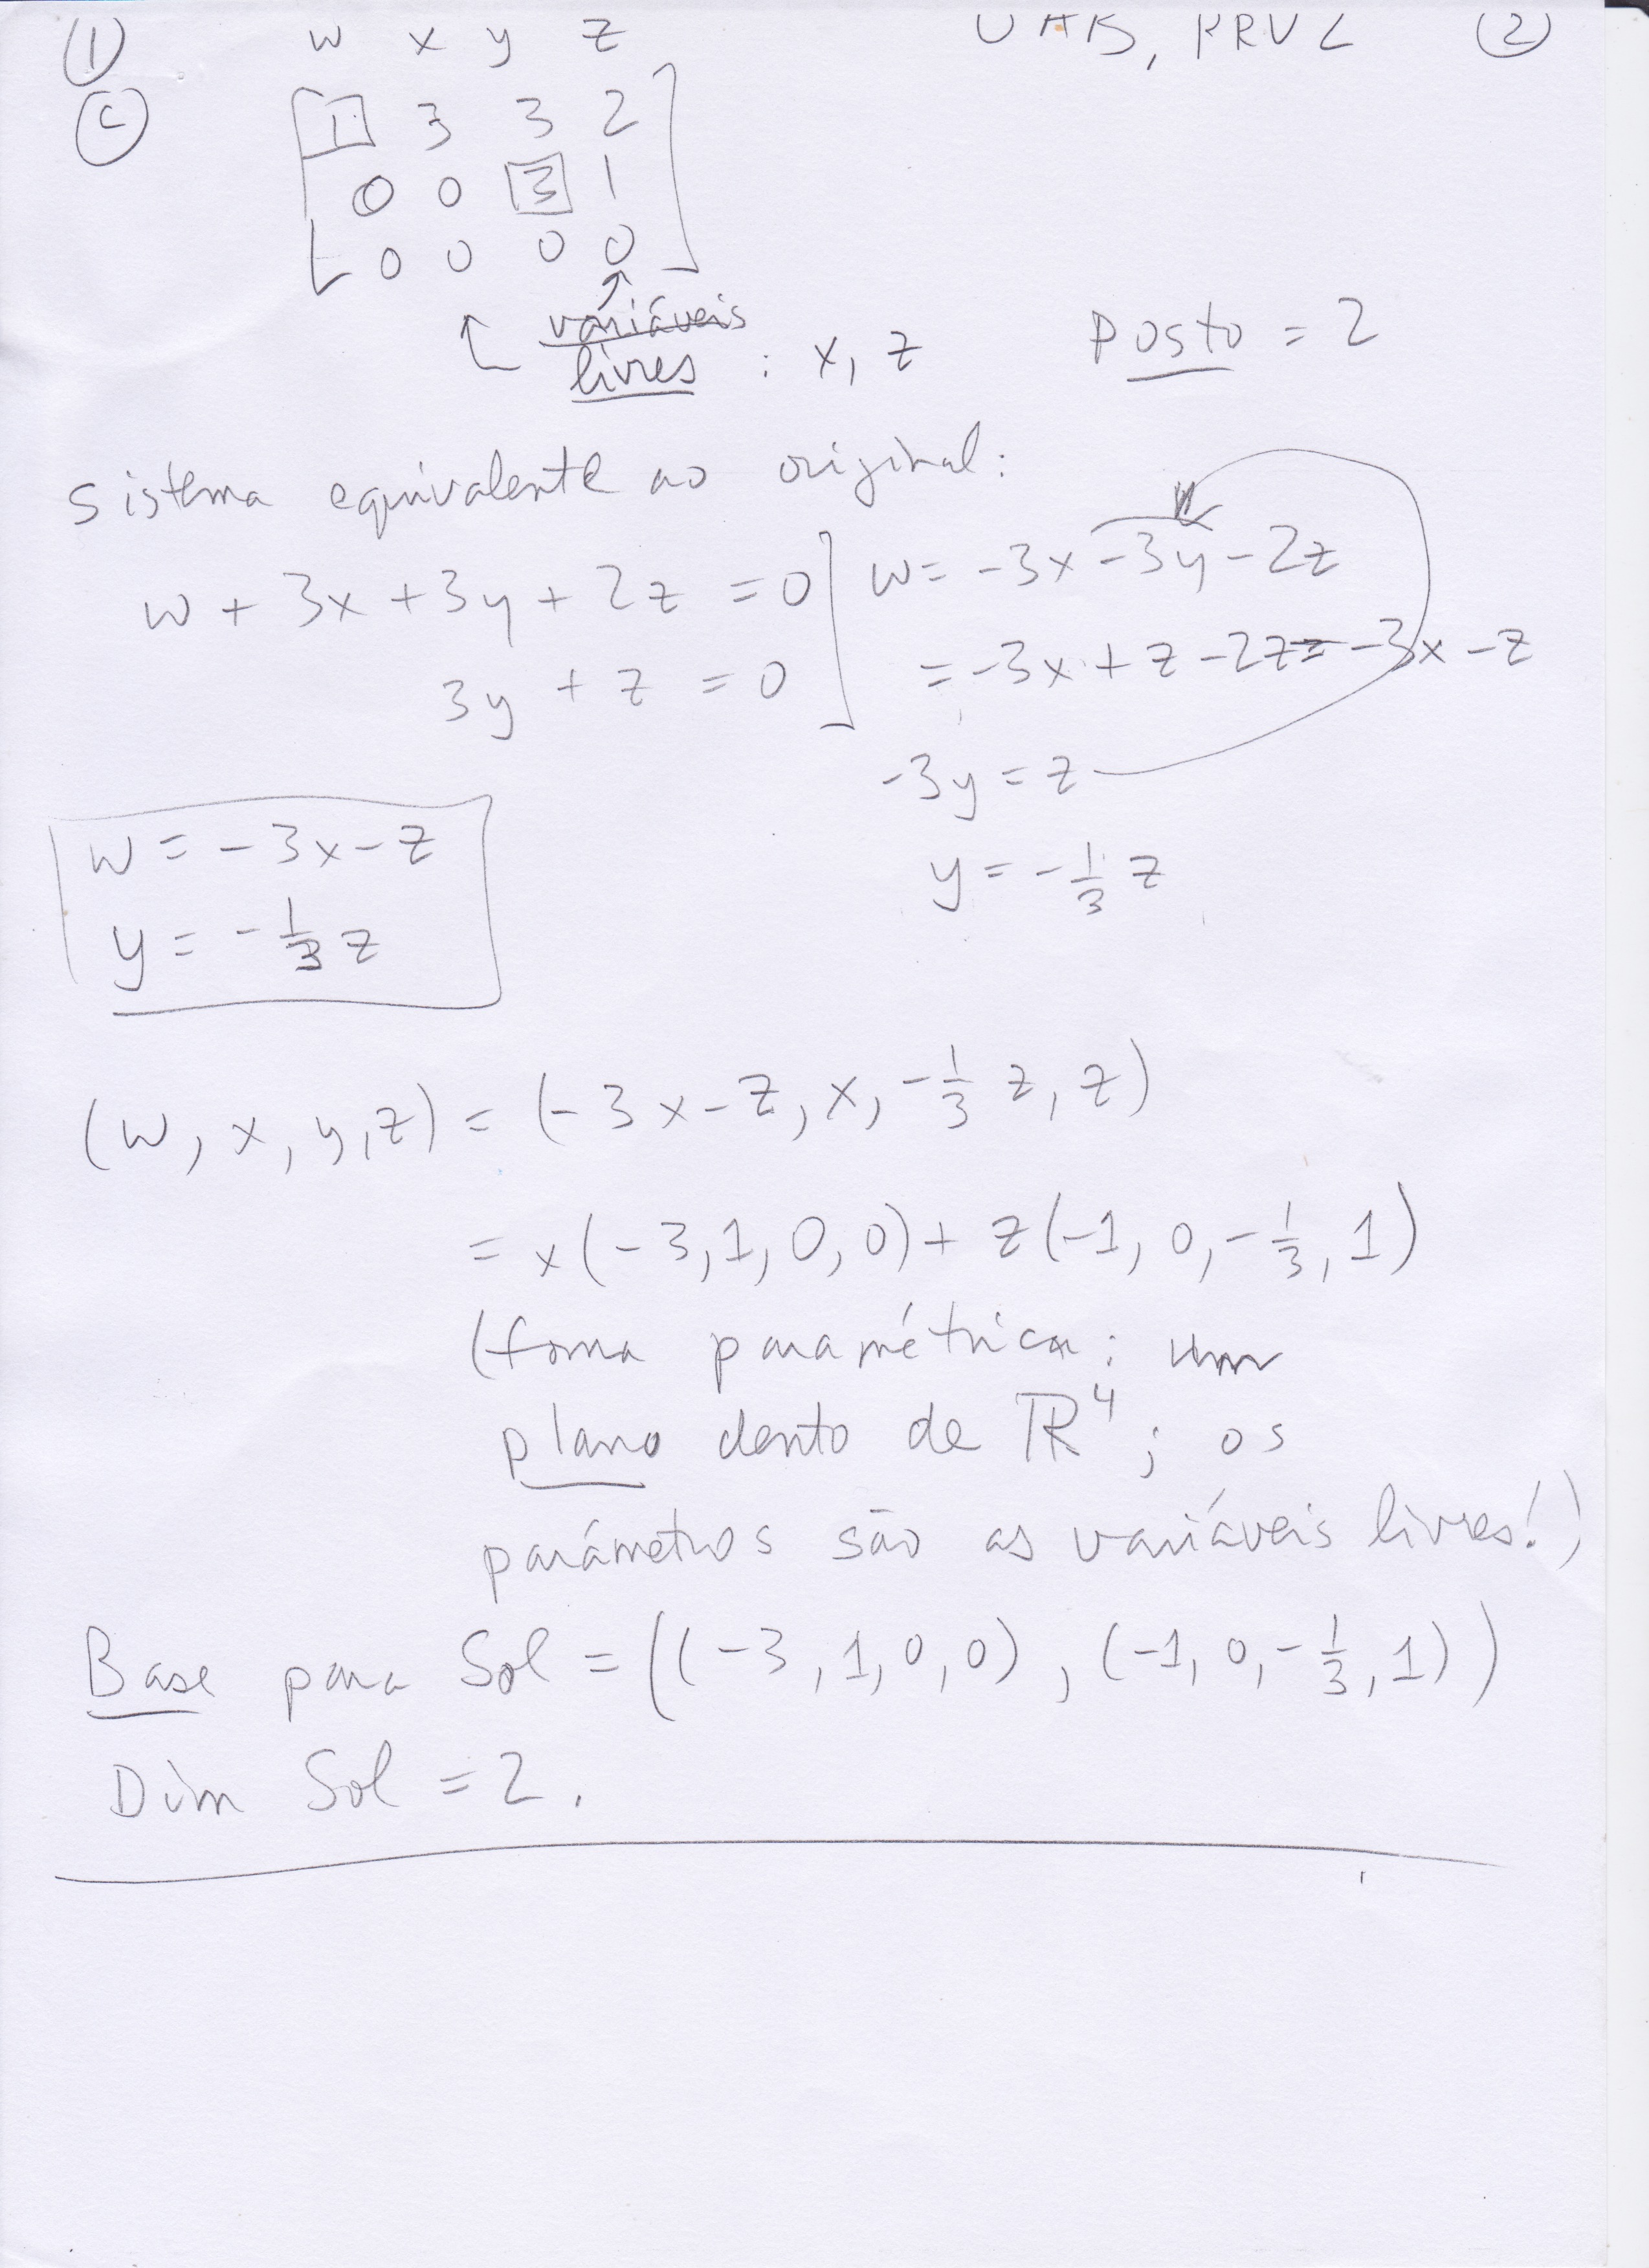 ① w x y z UAB, PRV2 ②
Ⓒ
1 3 3 2
0 0 3 1
0 0 0 0
variáveis
livres : x, z Posto = 2
Sistema equivalente ao original:
w + 3x + 3y + 2z = 0 w = -3x -3y - 2z
3y + z = 0 = -3x + z - 2z = -3x - z
-3y = z
w = -3x - z
y = -1/3 z
y = -1/3 z
(w, x, y, z) = (-3x - z, x, -1/3 z, z)
= x(-3, 1, 0, 0) + z(-1, 0, -1/3, 1)
(forma paramétrica: um
plano dento de ℝ⁴; os
parámetros são as variáveis livres!)
Base para Sol = ((-3, 1, 0, 0), (-1, 0, -1/3, 1))
Dim Sol = 2.